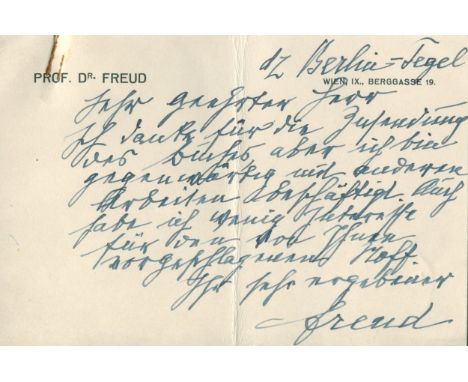 dz Berlin=Tegel
PROF. DR. FREUD
WIEN, IX., BERGGASSE 19.
Sehr geehrter Herr
Ich danke für die Zusendung
des Buches, aber ich bin
gegenwärtig mit anderen
Arbeiten beschäftigt. Auch
habe ich wenig Interesse
für den von Ihnen
vorgeschlagenen Stoff.
Ihr sehr ergebener
Freud